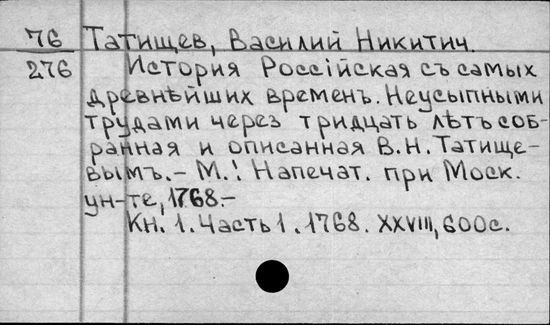 76 Татищев, Василий Никитич.
276 История Россійская съ самых
древнѣйших временъ. Неусыпными
трудами через тридцать лѣтъ соб-
ранная и описанная В.Н. Татище-
вымъ. - М.: Напечат. при Моск.
ун-те, 1768.-
Кн. 1. Часть 1. 1768. XXVIII, 600с.